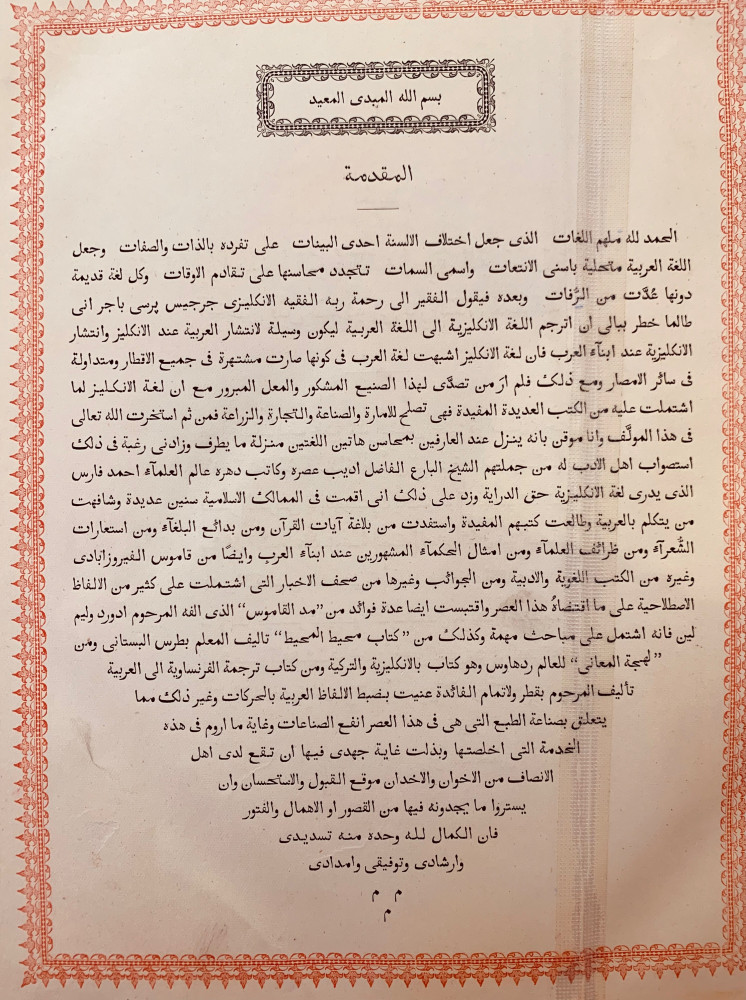 بسم الله المبدى المعيد
المقدمة
الحمد لله ملهم اللغات الذى جعل اختلاف الالسنة احدى البينات على تفرده بالذات والصفات وجعل
اللغة العربية متحلية باسنى الانتعات واسمى السمات تتجدد محاسنها على تقادم الاوقات وكل لغة قديمة
دونها عُدَّت من الرُّفات وبعده فيقول الفقير الى رحمة ربه الفقيه الانكليزى جرجيس پرسى باجر انى
طالما خطر ببالى ان اترجم اللغة الانكليزية الى اللغة العربية ليكون وسيلة لانتشار العربية عند الانكليز وانتشار
الانكليزية عند ابنآء العرب فان لغة الانكليز اشبهت لغة العرب فى كونها صارت مشتهرة فى جميع الاقطار ومتداولة
فى سائر الامصار ومع ذلك فلم ارَ من تصدَّى لهذا الصنيع المشكور والمعل المبرور مع ان لغة الانكليز لما
اشتملت عليه من الكتب العديدة المفيدة فهى تصلح للامارة والصناعة والتجارة والزراعة فمن ثم استخرت الله تعالى
فى هذا المولَّف وانا موقن بانه ينزل عند العارفين بمحاسن هاتين اللغتين منزلة ما يطرف وزادنى رغبة فى ذلك
استصواب اهل الادب له من جملتهم الشيخ البارع الفاضل اديب عصره وكاتب دهره عالم العلمآء احمد فارس
الذى يدرى لغة الانكليزية حق الدراية وزد على ذلك انى اقمت فى الممالك الاسلامية سنين عديدة وشافهت
من يتكلم بالعربية وطالعت كتبهم المفيدة واستفدت من بلاغة آيات القرآن ومن بدائع البلغآء ومن استعارات
الشُّعرآء ومن ظرائف العلمآء ومن امثال الحكمآء المشهورين عند ابنآء العرب وايضًا من قاموس الفيروزابادى
وغيره من الكتب اللغوية والادبية ومن الجوائب وغيرها من صحف الاخبار التى اشتملت على كثير من الالفاظ
الاصطلاحية على ما اقتضاهُ هذا العصر واقتبست ايضا عدة فوائد من "مد القاموس" الذى الفه المرحوم ادورد وليم
لين فانه اشتمل على مباحث مهمة وكذلك من "كتاب محيط المحيط" تاليف المعلم بطرس البستانى ومن
"لهجة المعانى" للعالم ردهاوس وهو كتاب بالانكليزية والتركية ومن كتاب ترجمة الفرنساوية الى العربية
تأليف المرحوم بقطر ولاتمام الفائدة عنيت بضبط الالفاظ العربية بالحركات وغير ذلك مما
يتعلق بصناعة الطبع التى هى فى هذا العصر انفع الصناعات وغاية ما اروم فى هذه
الخدمة التى اخلصتها وبذلت غاية جهدى فيها ان تقع لدى اهل
الانصاف من الاخوان والاخدان موقع القبول والاستحسان وان
يستروا ما يجدونه فيها من القصور او الاهمال والفتور
فان الكمال لله وحده منه تسديدى
وارشادى وتوفيقى وامدادى
م م
م